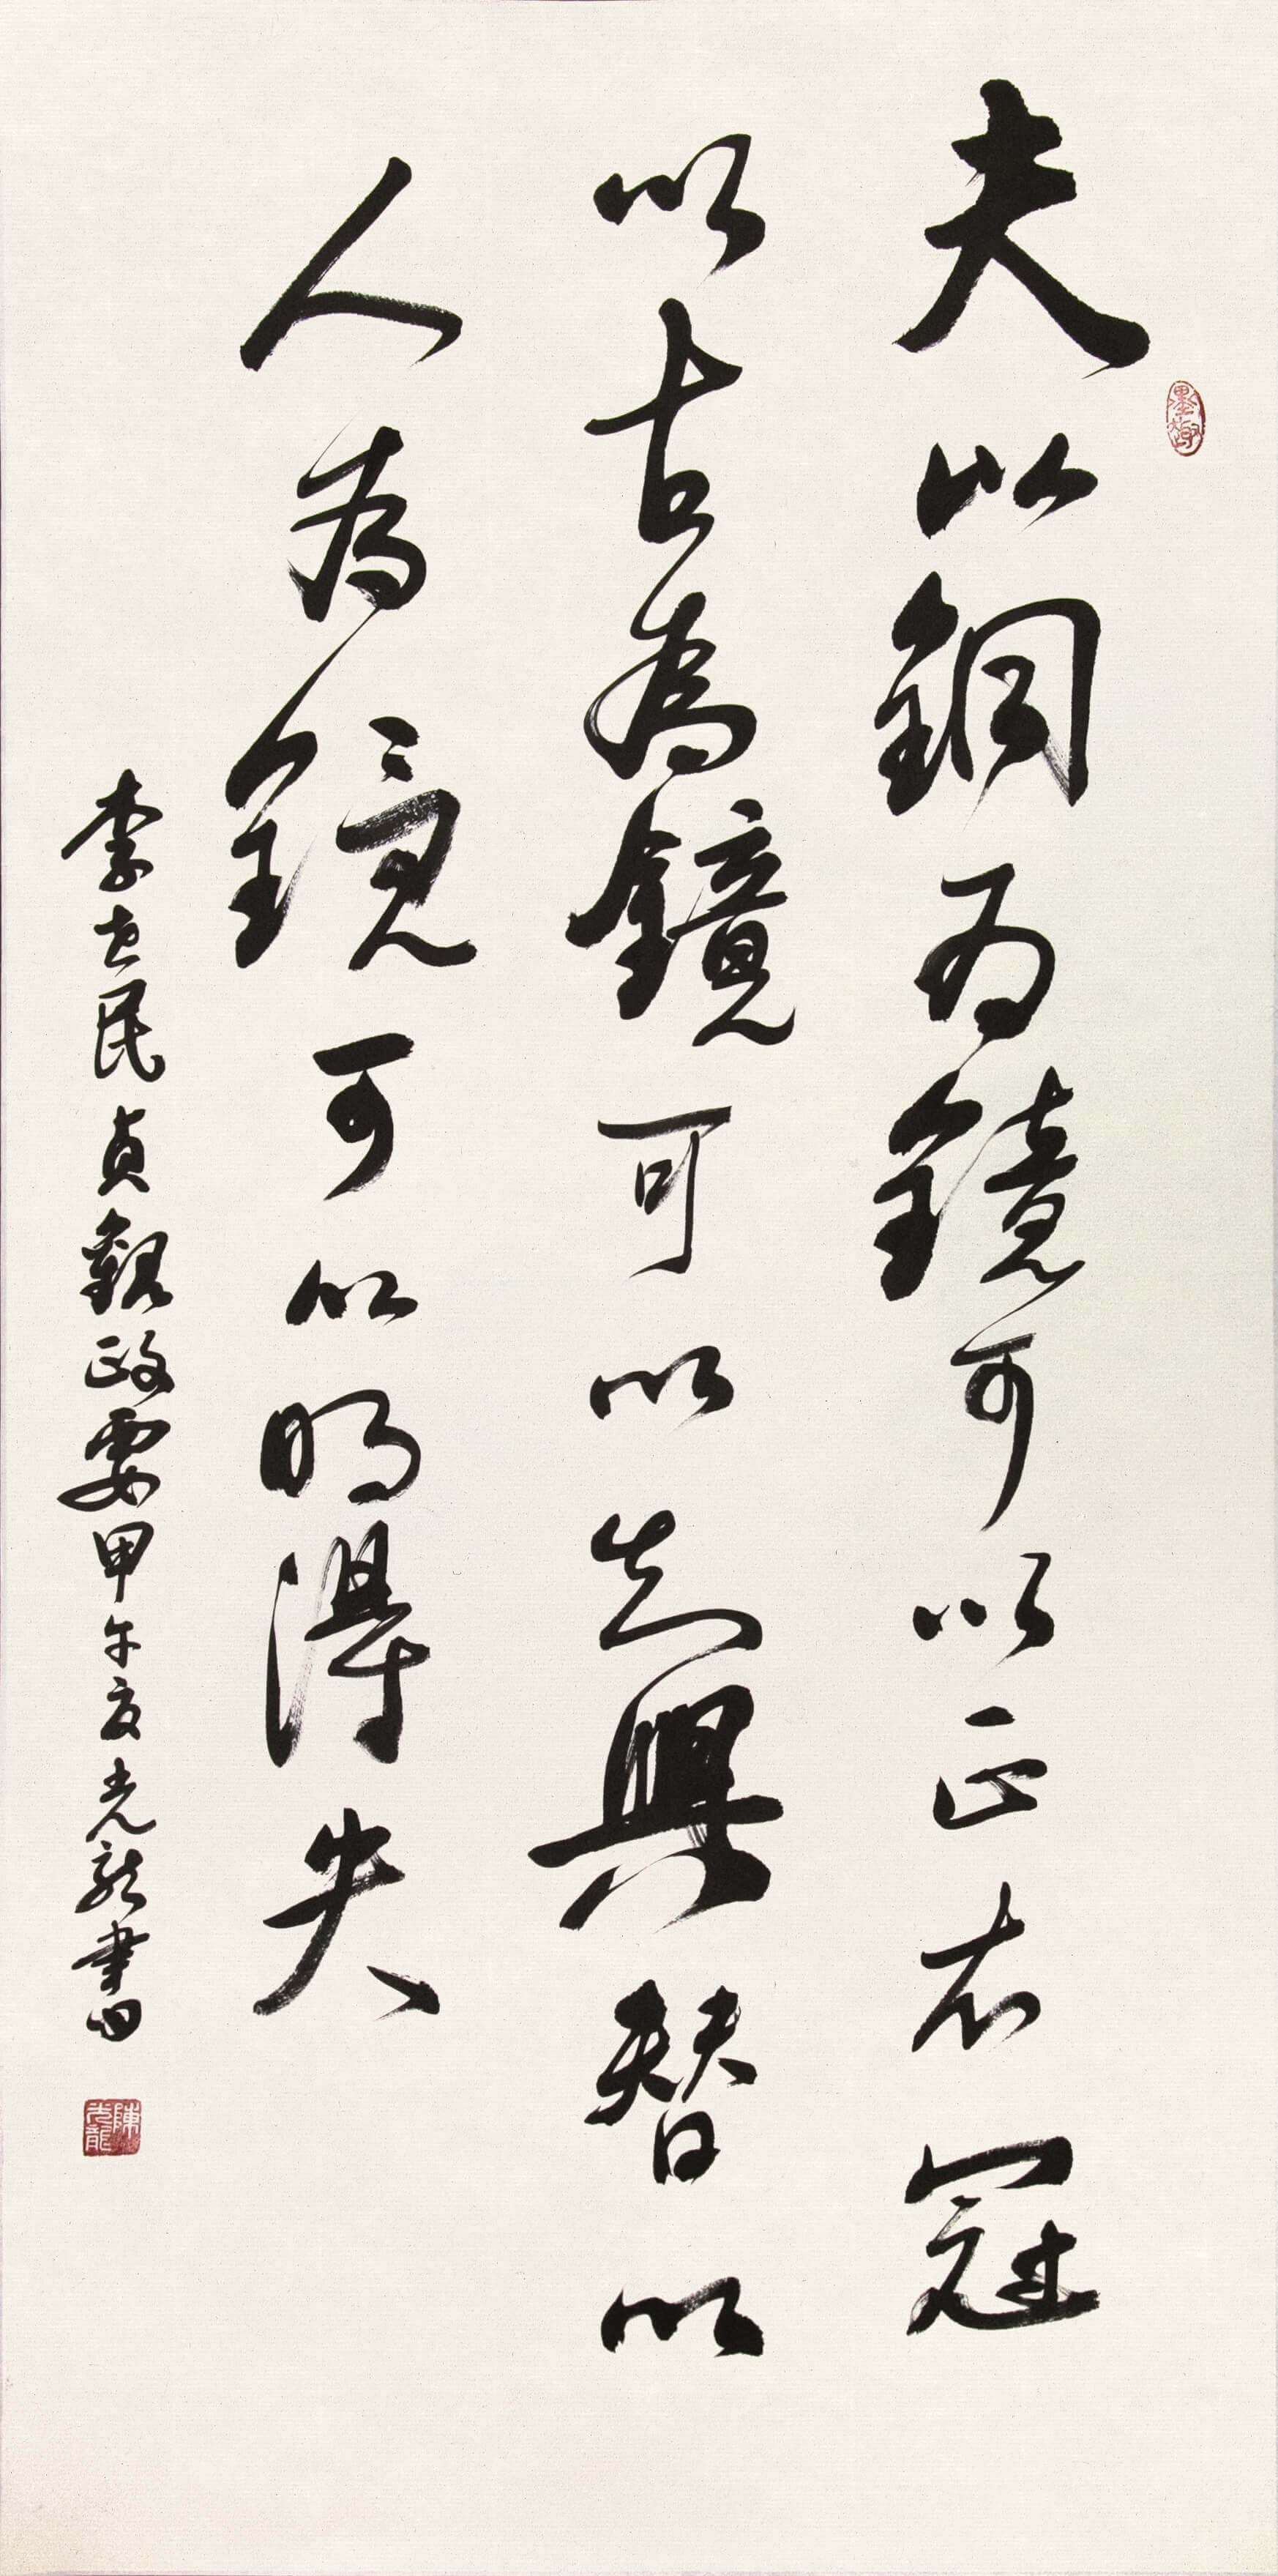 夫以銅為鏡可以正衣冠
以古為鏡可以知興替以
人為鏡可以明得失
李世民貞觀政要甲午夏光龍書
墨趣
陳光龍